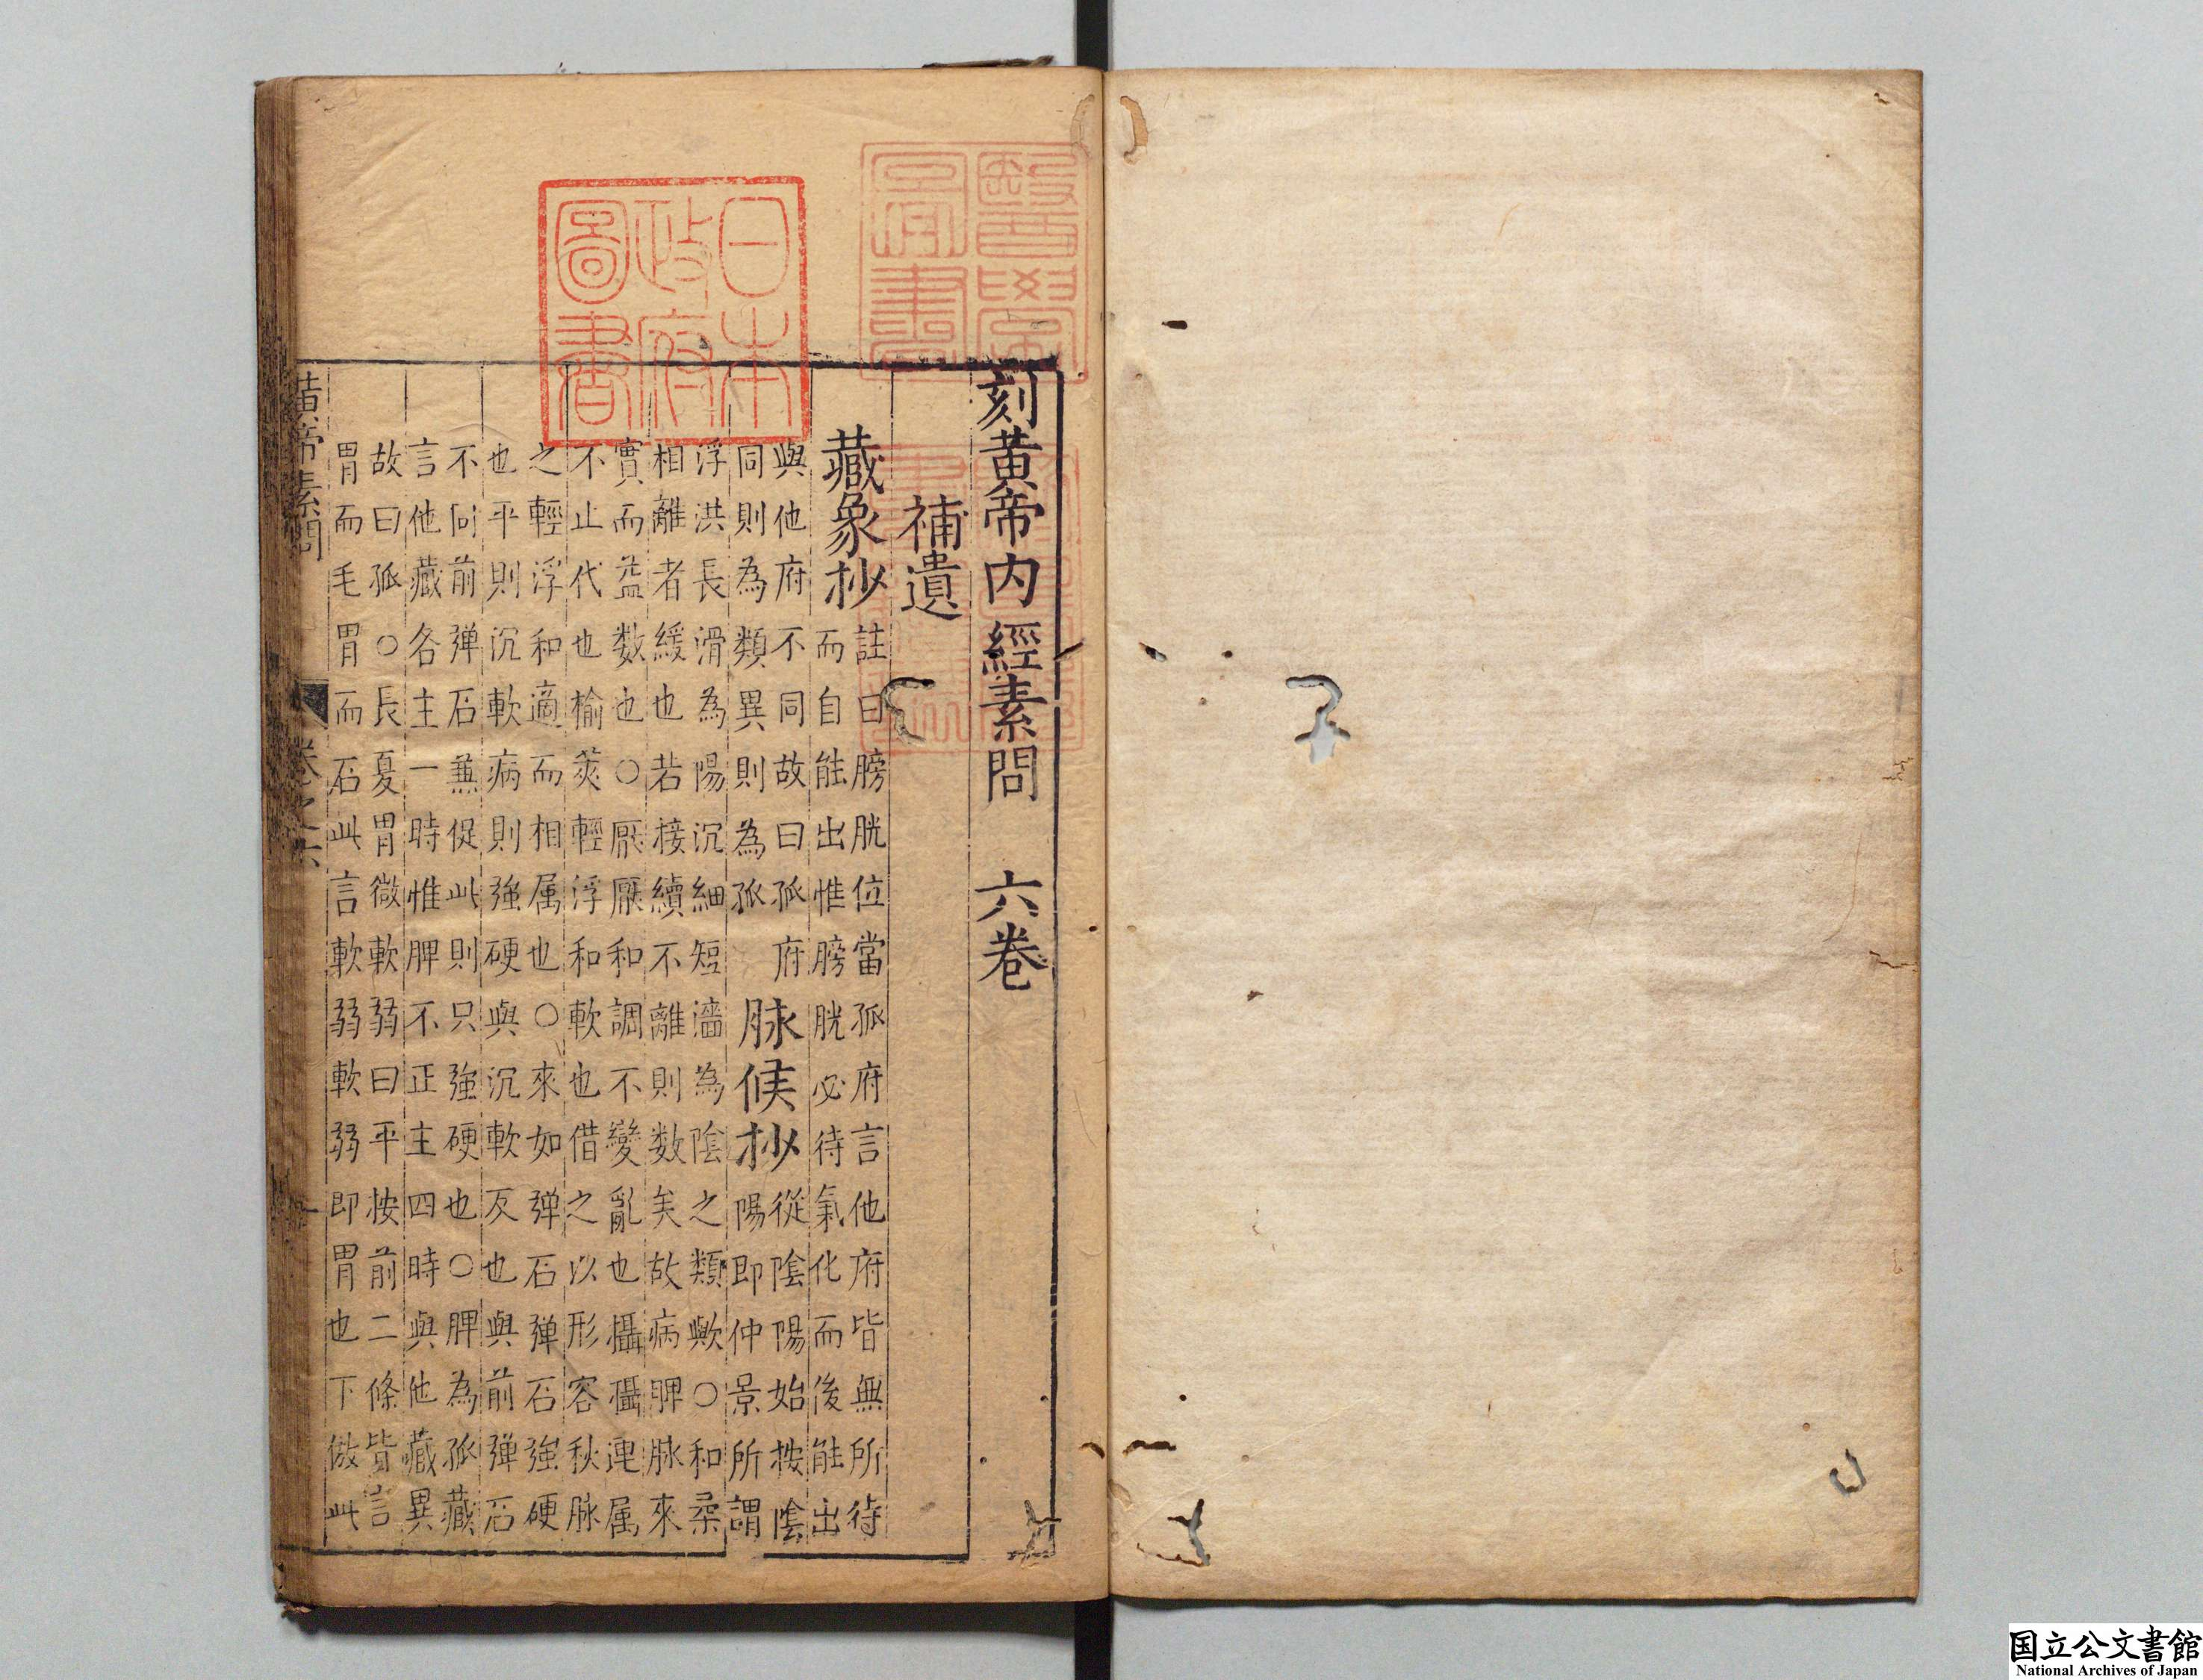 刻黃帝内經素問 六卷
補遺
藏象抄
註曰膀胱位當孤府言他府皆無所待
而自能出惟膀胱必待氣化而後能出
與他府不同故曰孤府
同則為類異則為孤
脉候抄
從陰陽始按陰
陽即仲景所謂
浮洪長滑為陽沉細短濇為陰之類歟○和柔
相離者緩也也若接續不離則数矣故病脾脉來
實而益数也○厭厭和調不變亂也攝攝連属
不止代也榆莢輕浮和軟也借之以形容秋脉
之輕浮和適而相属也○來如弹石弹石強硬
也平則沉軟病則強硬與沉軟反也與前弹石
不同前弹石兼促此則只強硬也○脾為孤藏
言他藏各主一時惟脾不正主四時與他藏異
故曰孤○長夏胃微軟弱曰平按前二條皆言
胃而毛胃而石此言軟弱軟弱即胃也下倣此
黃帝素問 卷之六 一
日本
政府
圖書
醫學
書
国立公文書館
National Archives of Japan